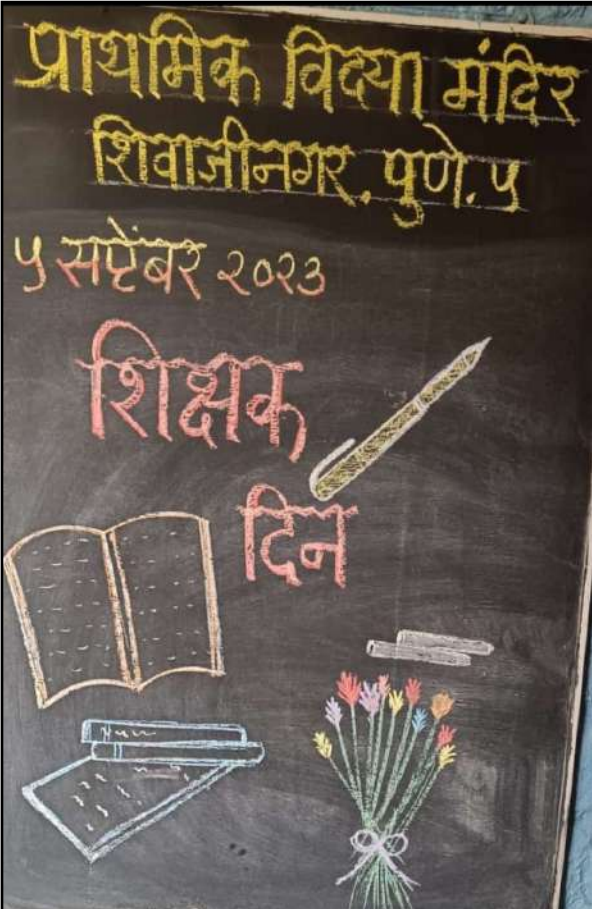 प्राथमिक विद्या मंदिर
शिवाजीनगर. पुणे. ५
५ सप्टेंबर २०२३
शिक्षक
दिन